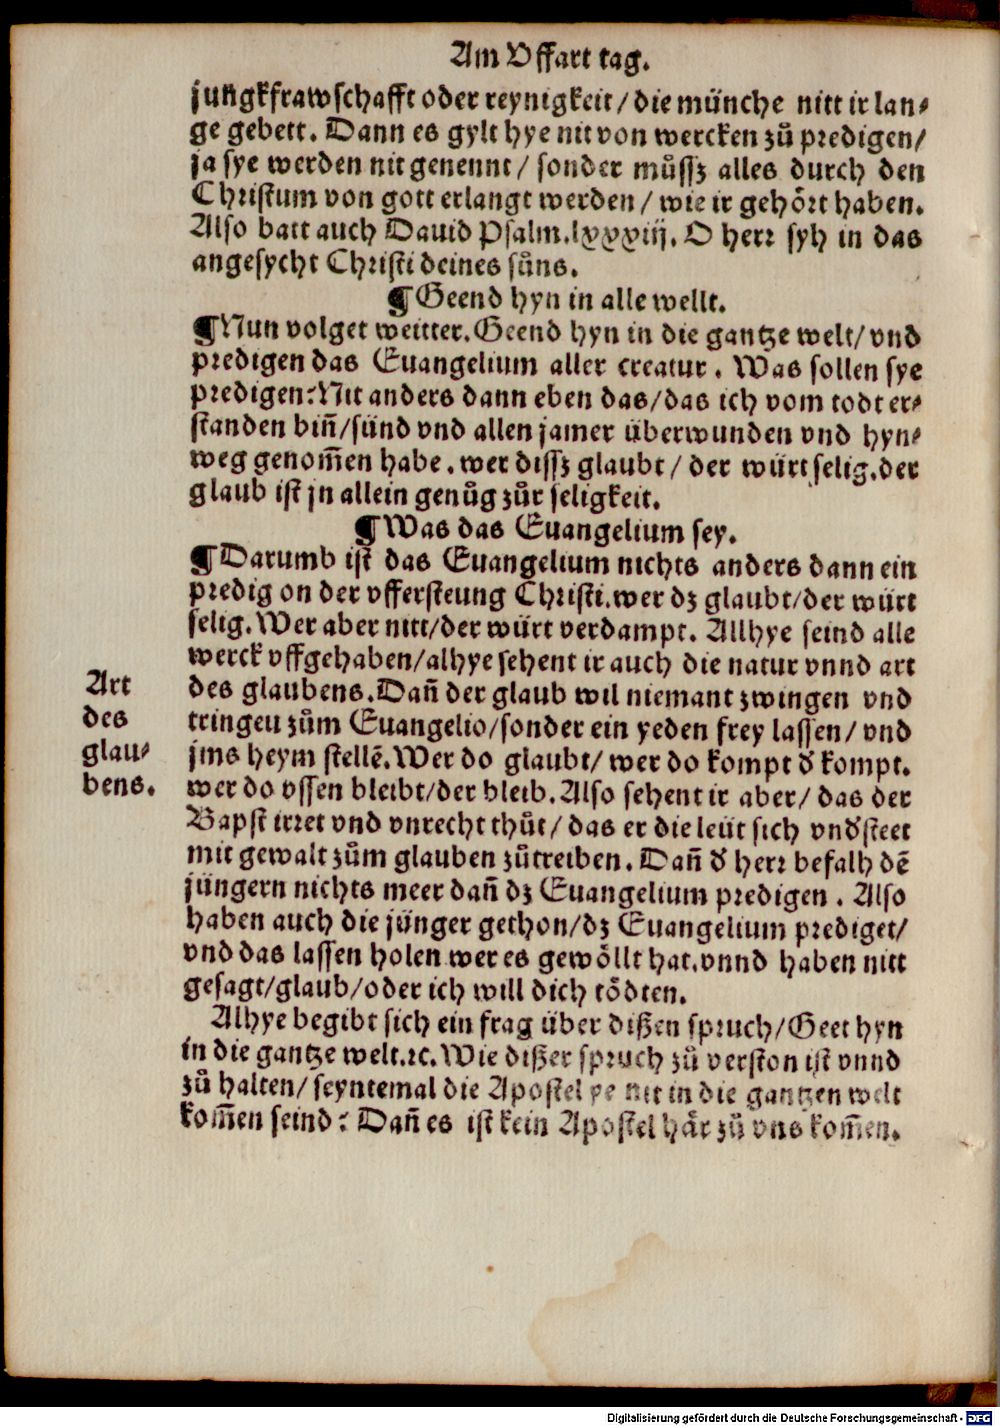 Am Vffart tag.
jungkfrawschafft oder reynigkeit/ die münche nitt ir lan⸗
ge gebett. Dann es gylt hye nit von wercken zů predigen/
ja sye werden nit genennt/ sonder můssz alles durch den
Christum von gott erlangt werden/ wie ir gehört haben.
Also batt auch Dauid Psalm.lxxxiij. O herr syh in das
angesycht Christi deines suͤns.
¶ Geend hyn in alle wellt.
¶ Nun volget weitter. Geend hyn in die gantze welt/ vnd
predigen das Euangelium aller creatur. Was sollen sye
predigen: Nit anders dann eben das/ das ich vom todt er⸗
standen biñ/ sünd vnd allen jamer überwunden vnd hyn⸗
weg genom̃en habe. wer dissz glaubt/ der würt selig. der
glaub ist jn allein genůg zůr seligkeit.
¶ Was das Euangelium sey.
¶ Darumb ist das Euangelium nichts anders dann ein
predig on der vffersteung Christi. wer dz glaubt/ der würt
selig. Wer aber nitt/ der würt verdampt. Allhye seind alle
werck vffgehaben/ alhye sehent ir auch die natur vnnd art
des glaubens. Dañ der glaub wil niemant zwingen vnd
tringeu zům Euangelio/ sonder ein yeden frey lassen/ vnd
jms heym stellē. Wer do glaubt/ wer do kompt d̕ kompt.
wer do vssen bleibt/ der bleib. Also sehent ir aber/ das der
Bapst irret vnd vnrecht thůt/ das er die leüt sich vnd̕steet
mit gewalt zům glauben zůtreiben. Dañ d̕ herr befalh dē
jüngern nichts meer dañ dz Euangelium predigen. Also
haben auch die jünger gethon/ dz Euangelium prediget/
vnd das lassen holen wer es gewöllt hat. vnnd haben nitt
gesagt/ glaub/ oder ich will dich tödten.
Alhye begibt sich ein frag über dißen spruch/ Geet hyn
in die gantze welt.⁊c. Wie dißer spruch zů verston ist vnnd
zů halten/ seyntemal die Apostel ye nit in die gantzen welt
kom̃en seind: Dañ es ist kein Apostel här zů vns kom̃en.
Art
des
glau⸗
bens.
Digitalisierung gefördert durch die Deutsche Forschungsgemeinschaft - DFG